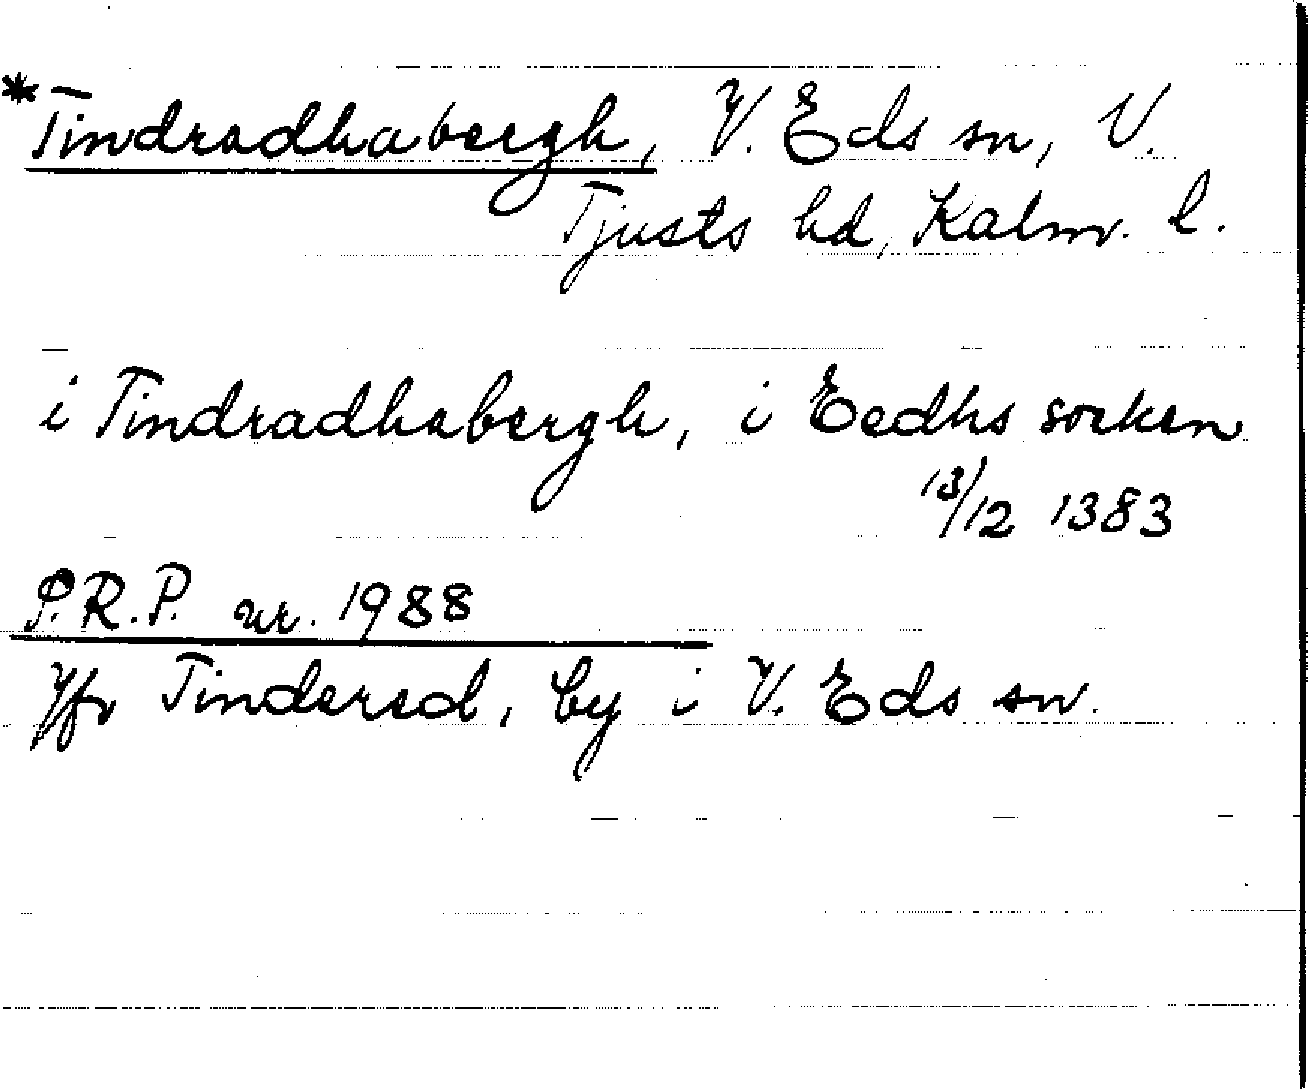 *Tindradhabergh, V. Eds sn, V.
Tjusts hd, Kalm. l.
i Tindradhabergh, i Eedhs socken
13/12 1383
P.R.P. nr. 1988
Jfr Tindered, by i V. Eds sn.